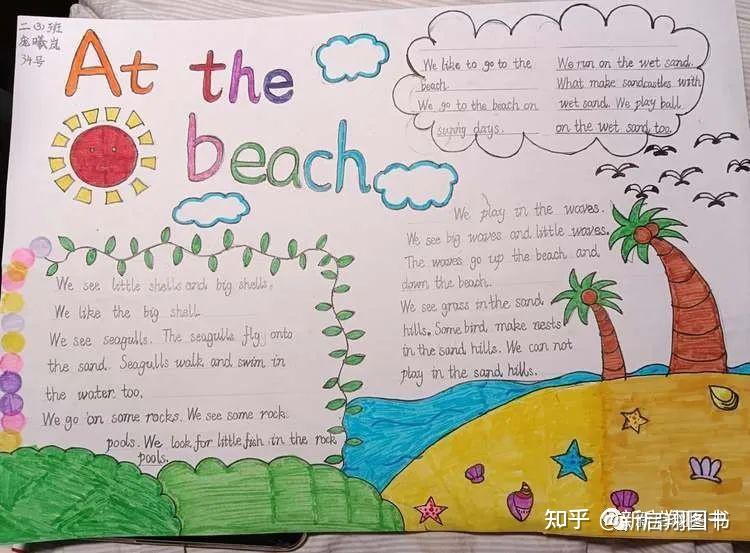 二(3)班
34号
At the
beach
We like to go to the
beach.
We go to the beach on
sunny days.
We run on the wet sand.
What make sandcastles with
wet sand. We play ball
on the wet sand too.
We play in the waves.
We see big waves and little waves.
The waves go up the beach and
down the beach.
We see grass in the sand
hills. Some bird make nests
in the sand hills. We can not
play in the sand hills.
We see little shells and big shells.
We like the big shell.
We see seagulls. The seagulls fly onto
the sand. Seagulls walk and swim in
the water too.
We go on some rocks. We see some rock
pools. We look for little fish in the rock
pools.
知乎 @新启翔图书